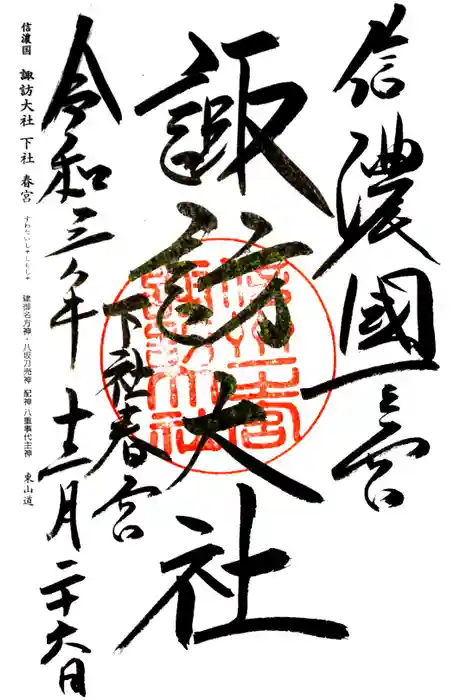 信濃國一之宮
諏訪大社
下社春宮
令和三年 十二月二十六日
信濃国 諏訪大社 下社 春宮 すわたいしゃしもしゃ 建御名方神・八坂刀売神 配神 八重事代主神 東山道